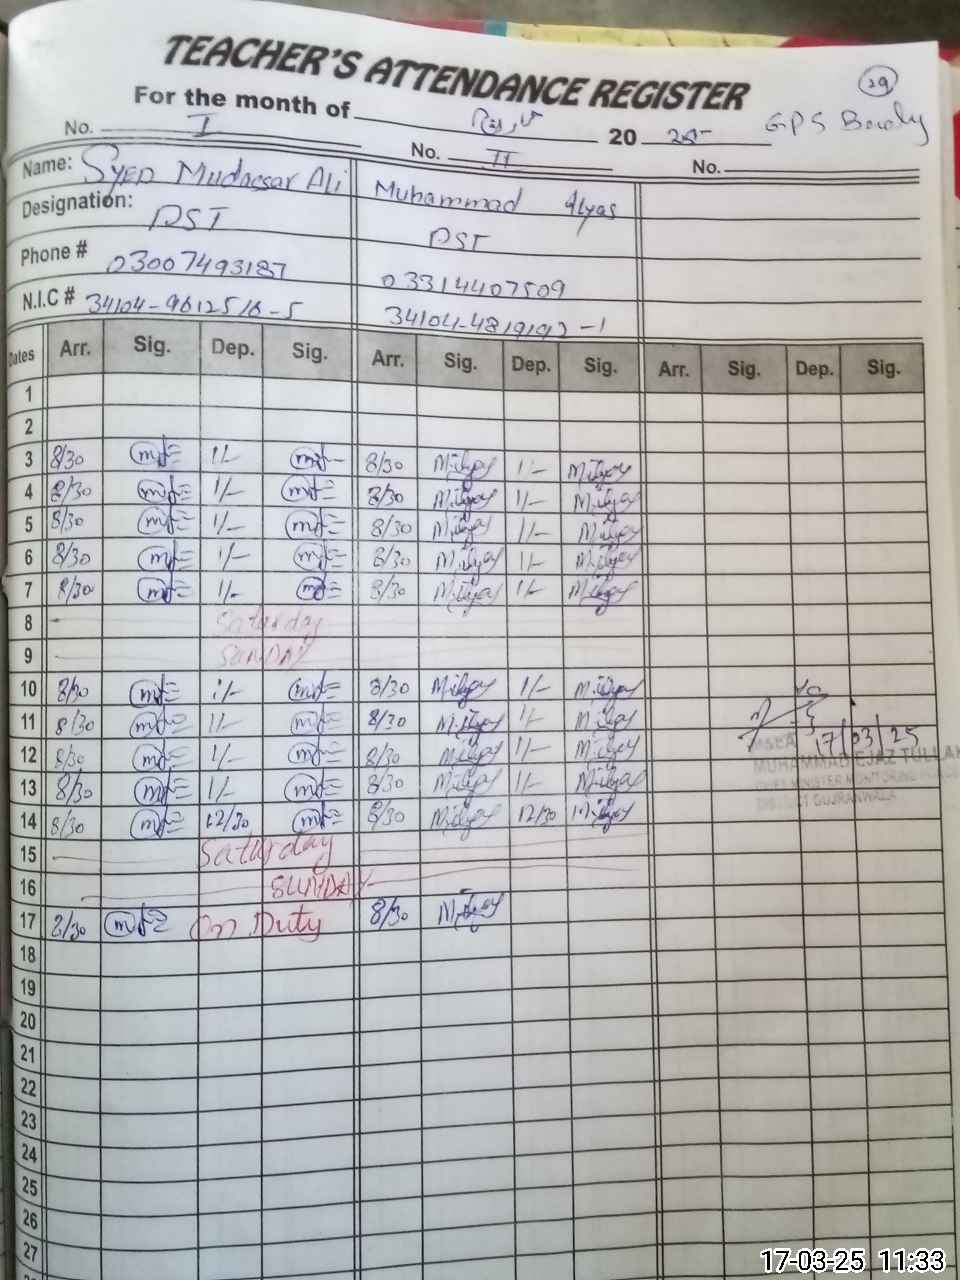 TEACHER'S ATTENDANCE REGISTER
29
For the month of 20 25 G.P.S
No. I No. II No.
Name: Syed Mudassar Ali Muhammad Ilyas
Designation: PST PST
Phone # 03007493187 03314407509
N.I.C # 34104-9612516-5 34104-4819192-1
Dates Arr. Sig. Dep. Sig. Arr. Sig. Dep. Sig. Arr. Sig. Dep. Sig.
1
2
3 8/30 1/- 8/30 M.Ilyas 1/- M.Ilyas
4 8/30 1/- 8/30 M.Ilyas 1/- M.Ilyas
5 8/30 1/- 8/30 M.Ilyas 1/- M.Ilyas
6 8/30 1/- 8/30 M.Ilyas 1/- M.Ilyas
7 8/30 1/- 8/30 M.Ilyas 1/- M.Ilyas
8 Saturday
9 SUNDAY
10 8/30 1/- 8/30 M.Ilyas 1/- M.Ilyas
11 8/30 1/- 8/30 M.Ilyas 1/- M.Ilyas
12 8/30 1/- 8/30 M.Ilyas 1/- M.Ilyas
13 8/30 1/- 8/30 M.Ilyas 1/- M.Ilyas
14 8/30 12/30 8/30 M.Ilyas 12/30 M.Ilyas
15 Saturday
16 SUNDAY
17 8/30 On Duty 8/30 M.Ilyas
18
19
20
21
22
23
24
25
26
27
17/03/25
MUHAMMAD EJAZ TULLAH
CHIEF MINISTER MONITORING FORCE
DISTRICT GUJRANWALA
17-03-25 11:33